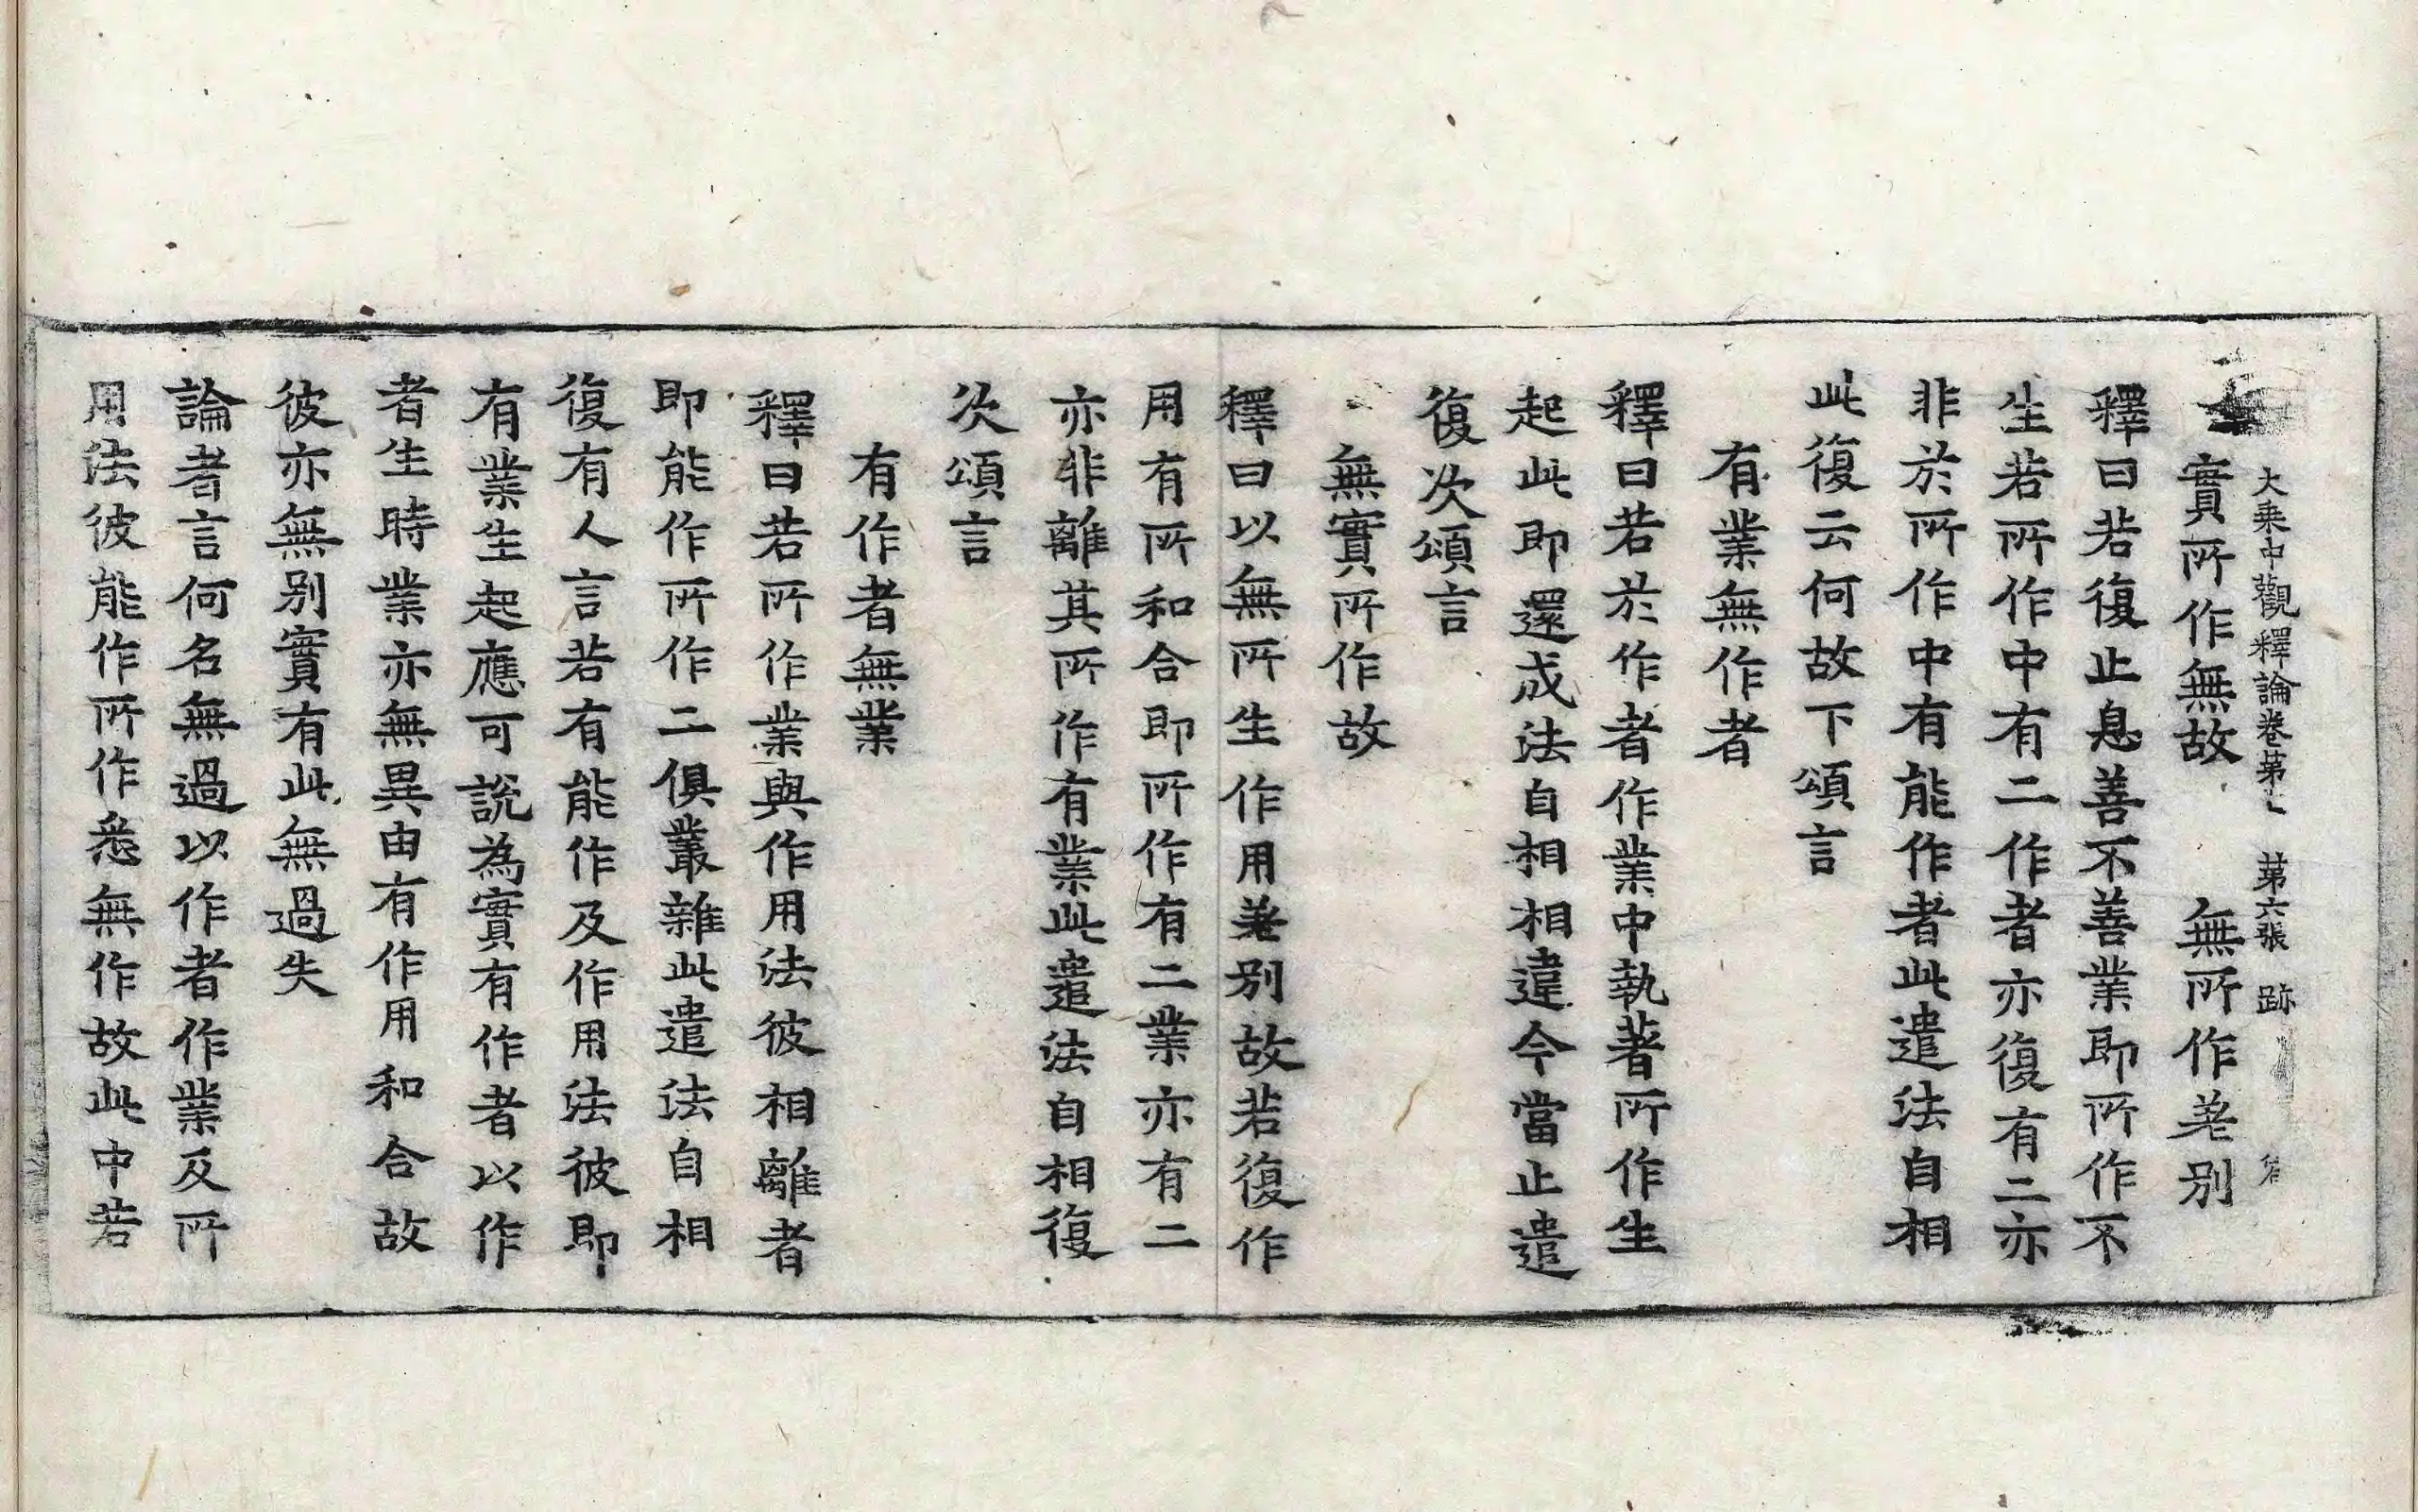 大乗中觀釋論卷苐七　苐六張　跡
實所作無故　無所作差别
釋曰若復止息善不善業即所作不
生若所作中有二作者亦復有二亦
非於所作中有能作者此遣法自相
此復云何故下頌言
有業無作者
釋曰若於作者作業中執著所作生
起此即還成法自相相違今當止遣
復次頌言
無實所作故
釋曰以無所生作用差别故若復作
用有所和合即所作有二業亦有二
亦非離其所作有業此遣法自相復
次頌言
有作者無業
釋曰若所作業與作用法彼相離者
即能作所作二俱叢雜此遣法自相
復有人言若有能作及作用法彼即
有業生起應可說為實有作者以作
者生時業亦無異由有作用和合故
彼亦無别實有此無過失
論者言何名無過以作者作業及所
用法彼能作所作悉無作故此中若